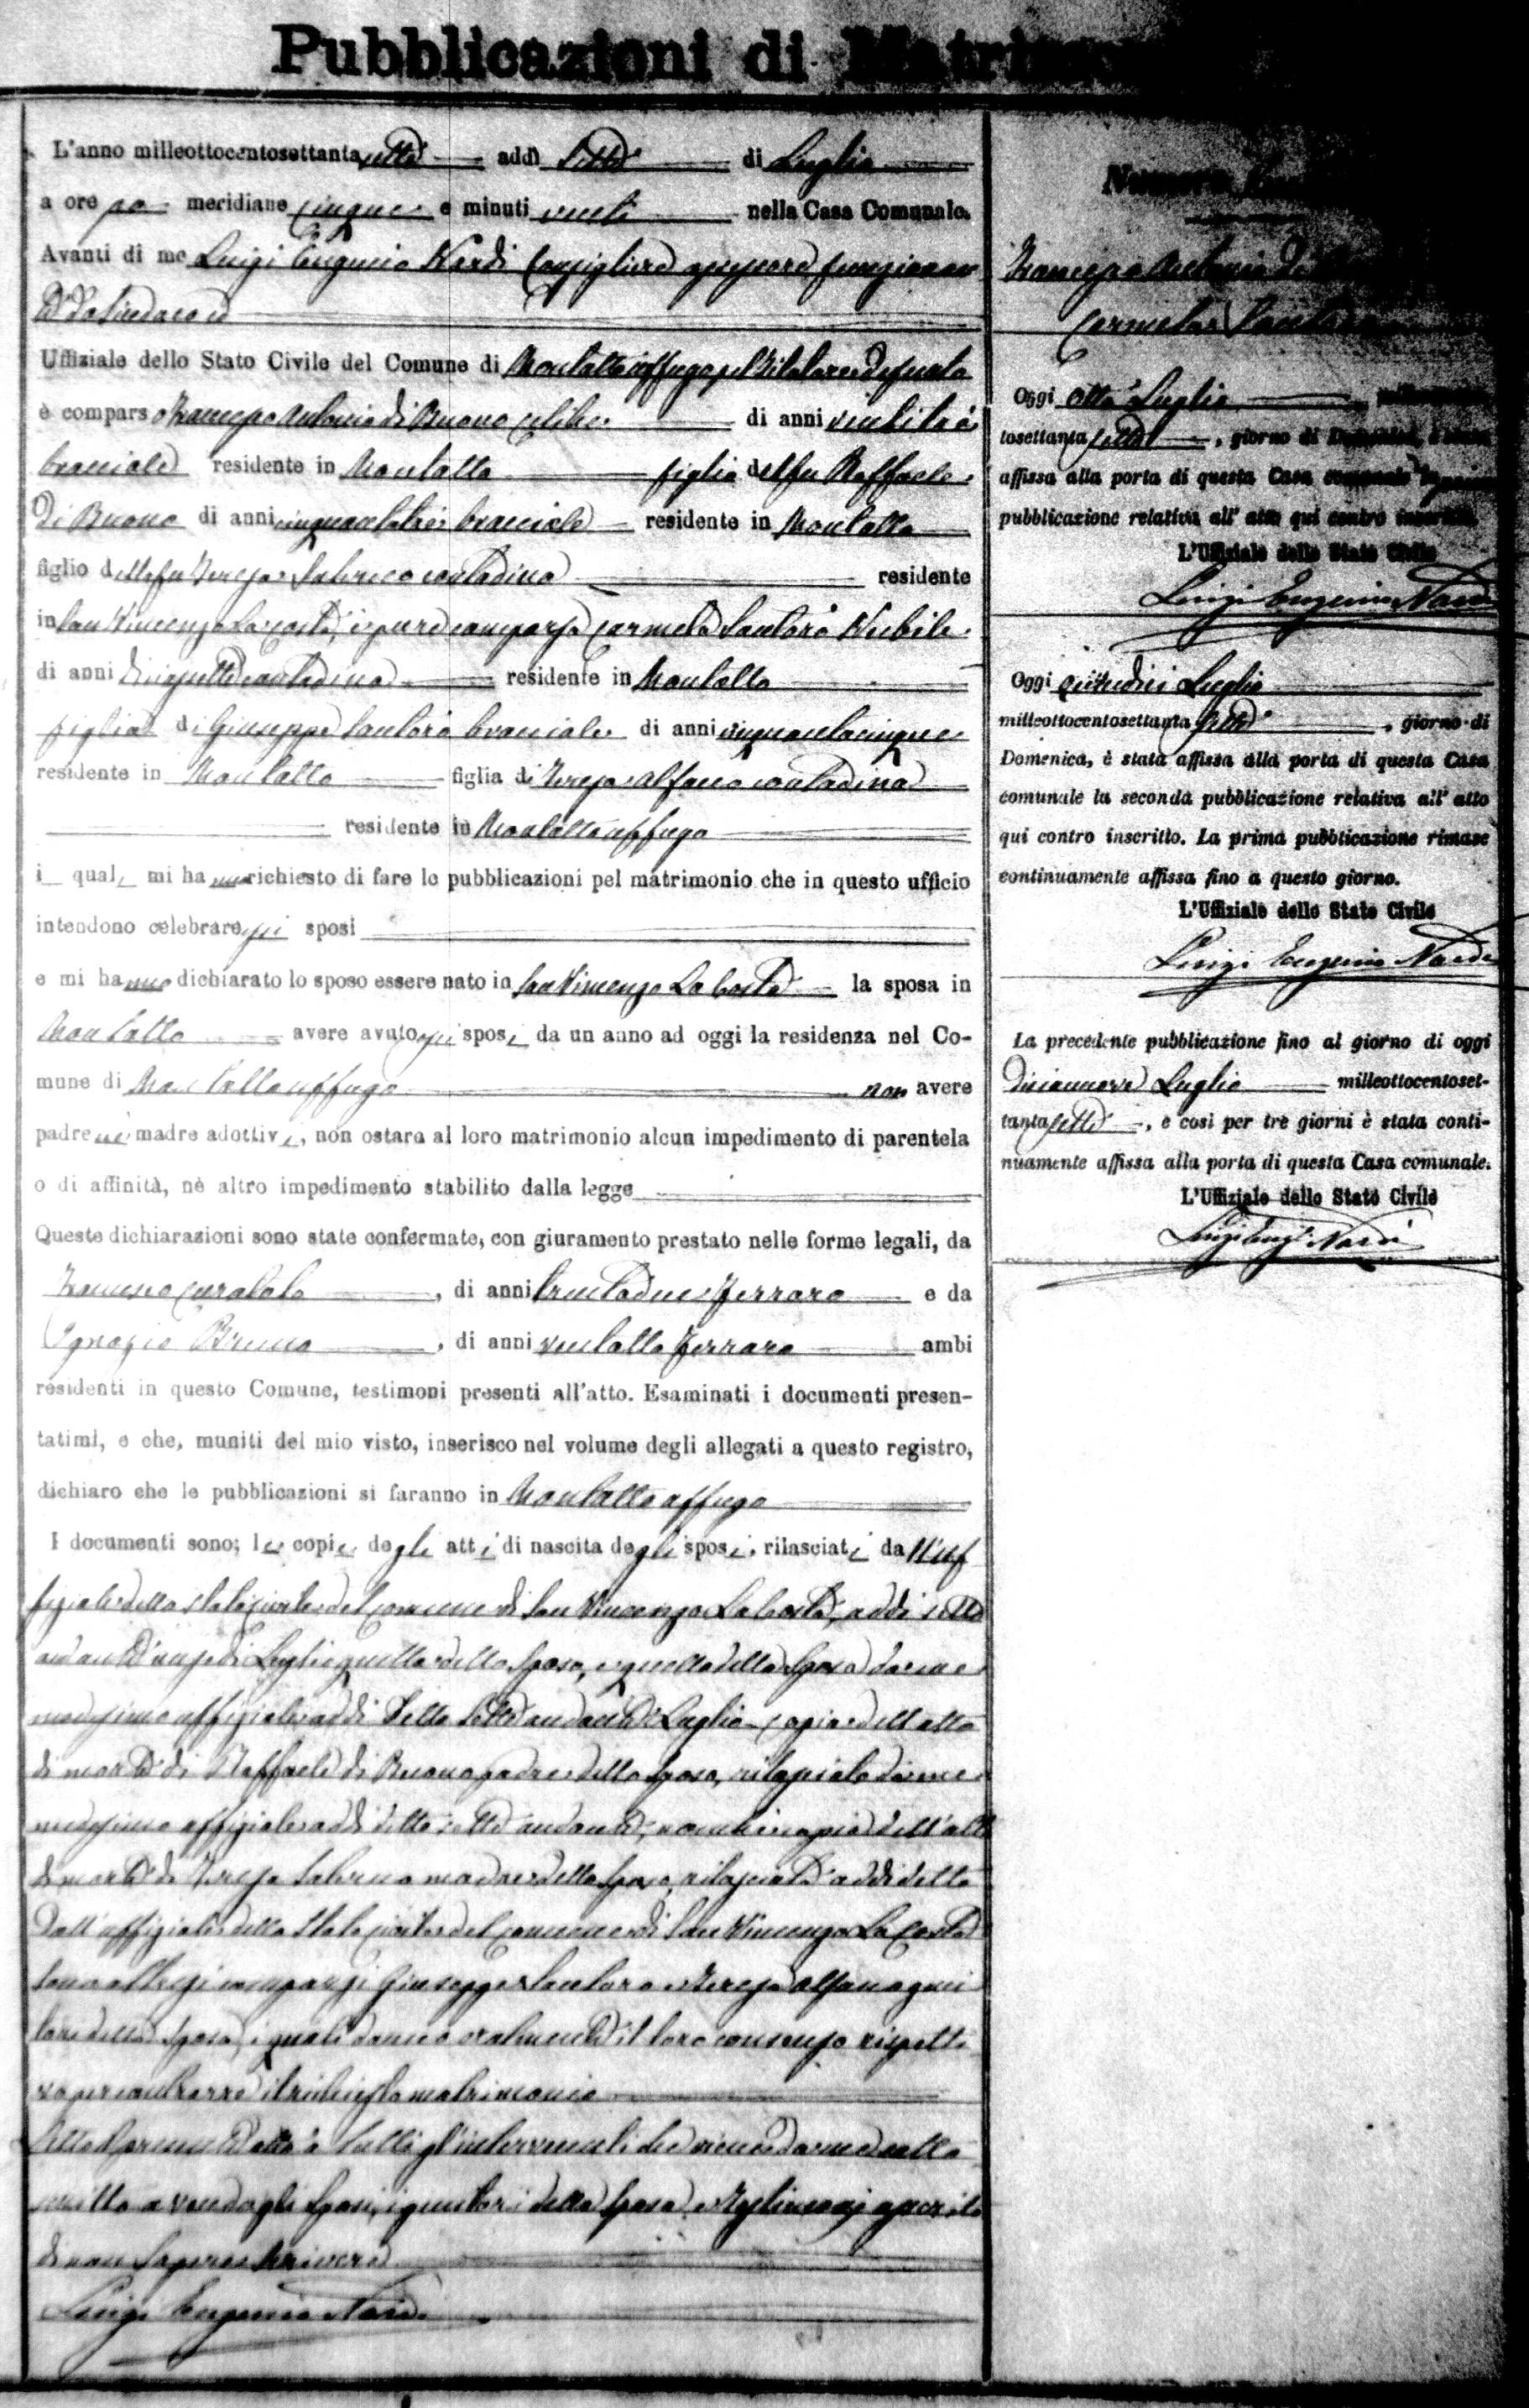 Pubblicazioni di
L'anno milleottocentosettantasette addì sette di Luglio
a ore po meridiane cinque e minuti venti nella Casa Comunale.
Avanti di me Luigi Eugenio Nardi Consigliere funzionan
te da Sindaco ed
Uffiziale dello Stato Civile del Comune di Montalto uffugo pel titolare
è comparso Francesco Antonio di Buono celibe di anni ventitrè
bracciale residente in Montalto figlio del fu Raffaele
di Buono di anni cinquantatrè bracciale residente in Montalto
figlio della fu Teresa Salerno contadina residente
in San Vincenzo La Costa, è pure comparsa Carmela Santoro Nubile
di anni diciasette contadina residente in Montalto
figlia di Giuseppe Santoro bracciale di anni cinquantacinque
residente in Montalto figlia di Teresa Alfano contadina
residente in Montalto uffugo
i quali mi hanno richiesto di fare le pubblicazioni pel matrimonio che in questo ufficio
intendono celebrare essi sposi
e mi hanno dichiarato lo sposo essere nato in San Vincenzo La Costa la sposa in
Montalto avere avuto essi sposi da un anno ad oggi la residenza nel Co-
mune di Montalto uffugo non avere
padre nè madre adottivi, non ostare al loro matrimonio alcun impedimento di parentela
o di affinità, nè altro impedimento stabilito dalla legge
Queste dichiarazioni sono state confermate, con giuramento prestato nelle forme legali, da
Francesco Curatolo, di anni trentadue Ferraro e da
Ignazio Bruno, di anni ventotto Ferraro ambi
residenti in questo Comune, testimoni presenti all'atto. Esaminati i documenti presen-
tatimi, e che, muniti del mio visto, inserisco nel volume degli allegati a questo registro,
dichiaro che le pubblicazioni si faranno in Montalto uffugo
I documenti sono; le copie degli atti di nascita degli sposi, rilasciati dall'uf
fiziale dello Stato civile del comune di San Vincenzo La Costa, addì sette
andante mese di Luglio quella dello sposo, e quella della sposa da me
medesimo uffiziale addì detto sette andante Luglio copia dell'atto
di morte di Raffaele di Buono padre dello sposo, rilasciata da me
medesimo uffiziale addì detto sette andante, nonchè copia dell'atto
di morte di Teresa Salerno madre dello sposo, rilasciata addì detto
dall'uffiziale dello Stato civile del comune di San Vincenzo La Costa
sono altresì comparsi Giuseppe Santoro e Teresa Alfano geni
tori della sposa, i quali danno oralmente il loro consenso rispetti
vo per contrarre il richiesto matrimonio
Letto il presente atto a tutti gl'intervenuti viene da me sotto
scritto avendo gli sposi, i genitori della sposa e testimoni asserito
di non sapere scrivere
Luigi Eugenio Nardi
Numero
Francesco Antonio di
Carmela Santoro
Oggi otto Luglio
tosettantasette, giorno di Domenica, è stata
affissa alla porta di questa Casa comunale la prima
pubblicazione relativa all' atto qui contro inscritto.
L'Uffiziale dello Stato Civile
Luigi Eugenio Nardi
Oggi quindici Luglio
milleottocentosettantasette, giorno di
Domenica, è stata affissa alla porta di questa Casa
comunale la seconda pubblicazione relativa all' atto
qui contro inscritto. La prima pubblicazione rimase
continuamente affissa fino a questo giorno.
L'Uffiziale dello Stato Civile
Luigi Eugenio Nardi
La precedente pubblicazione fino al giorno di oggi
diciannove Luglio milleottocentoset-
tantasette, e così per tre giorni è stata conti-
nuamente affissa alla porta di questa Casa comunale.
L'Uffiziale dello Stato Civile
Luigi Eug. Nardi